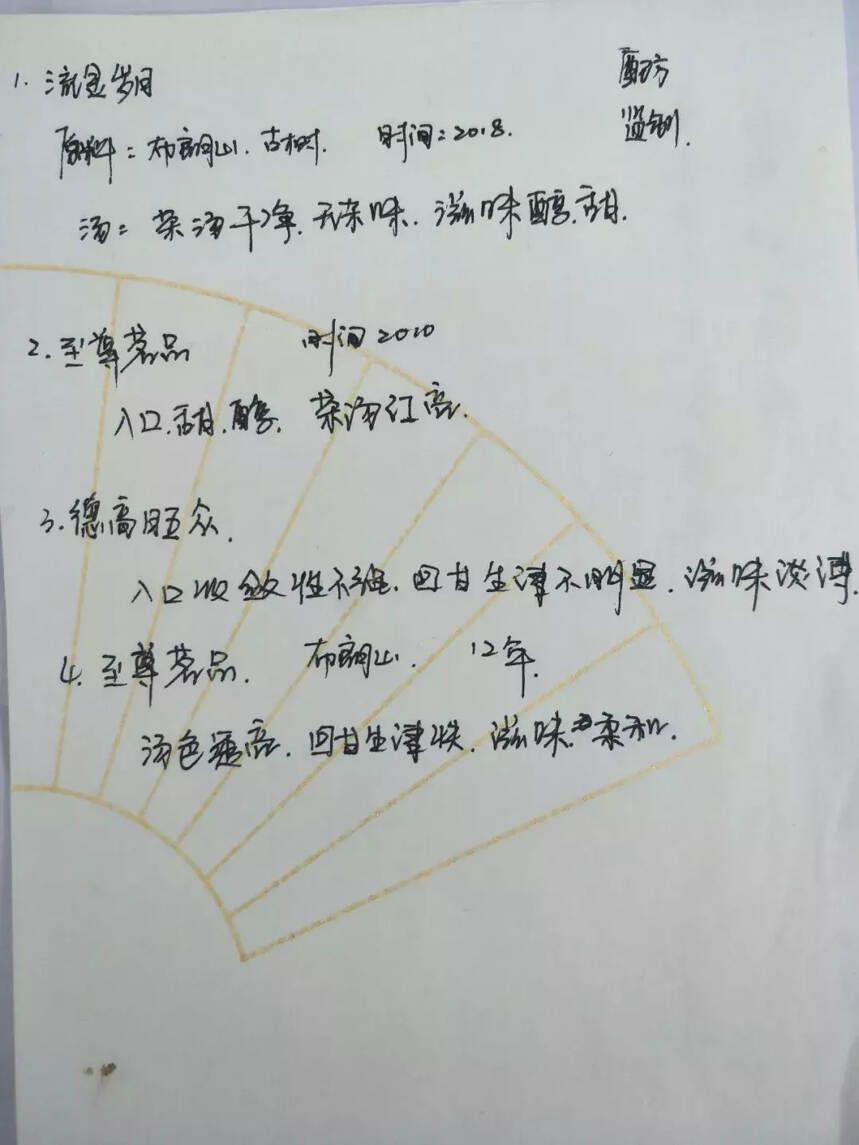 1. 流金岁月 配方
原料：布朗山. 古树. 时间：2018. 监制.
汤：茶汤干净. 无杂味. 滋味醇.甜.
2. 至尊茗品 时间 2010
入口.甜.醇. 茶汤红亮.
3. 德高旺众.
入口收敛性不强. 回甘生津不明显. 滋味淡薄.
4. 至尊茗品. 布朗山. 12年.
汤色 亮. 回甘生津快. 滋味 柔和.